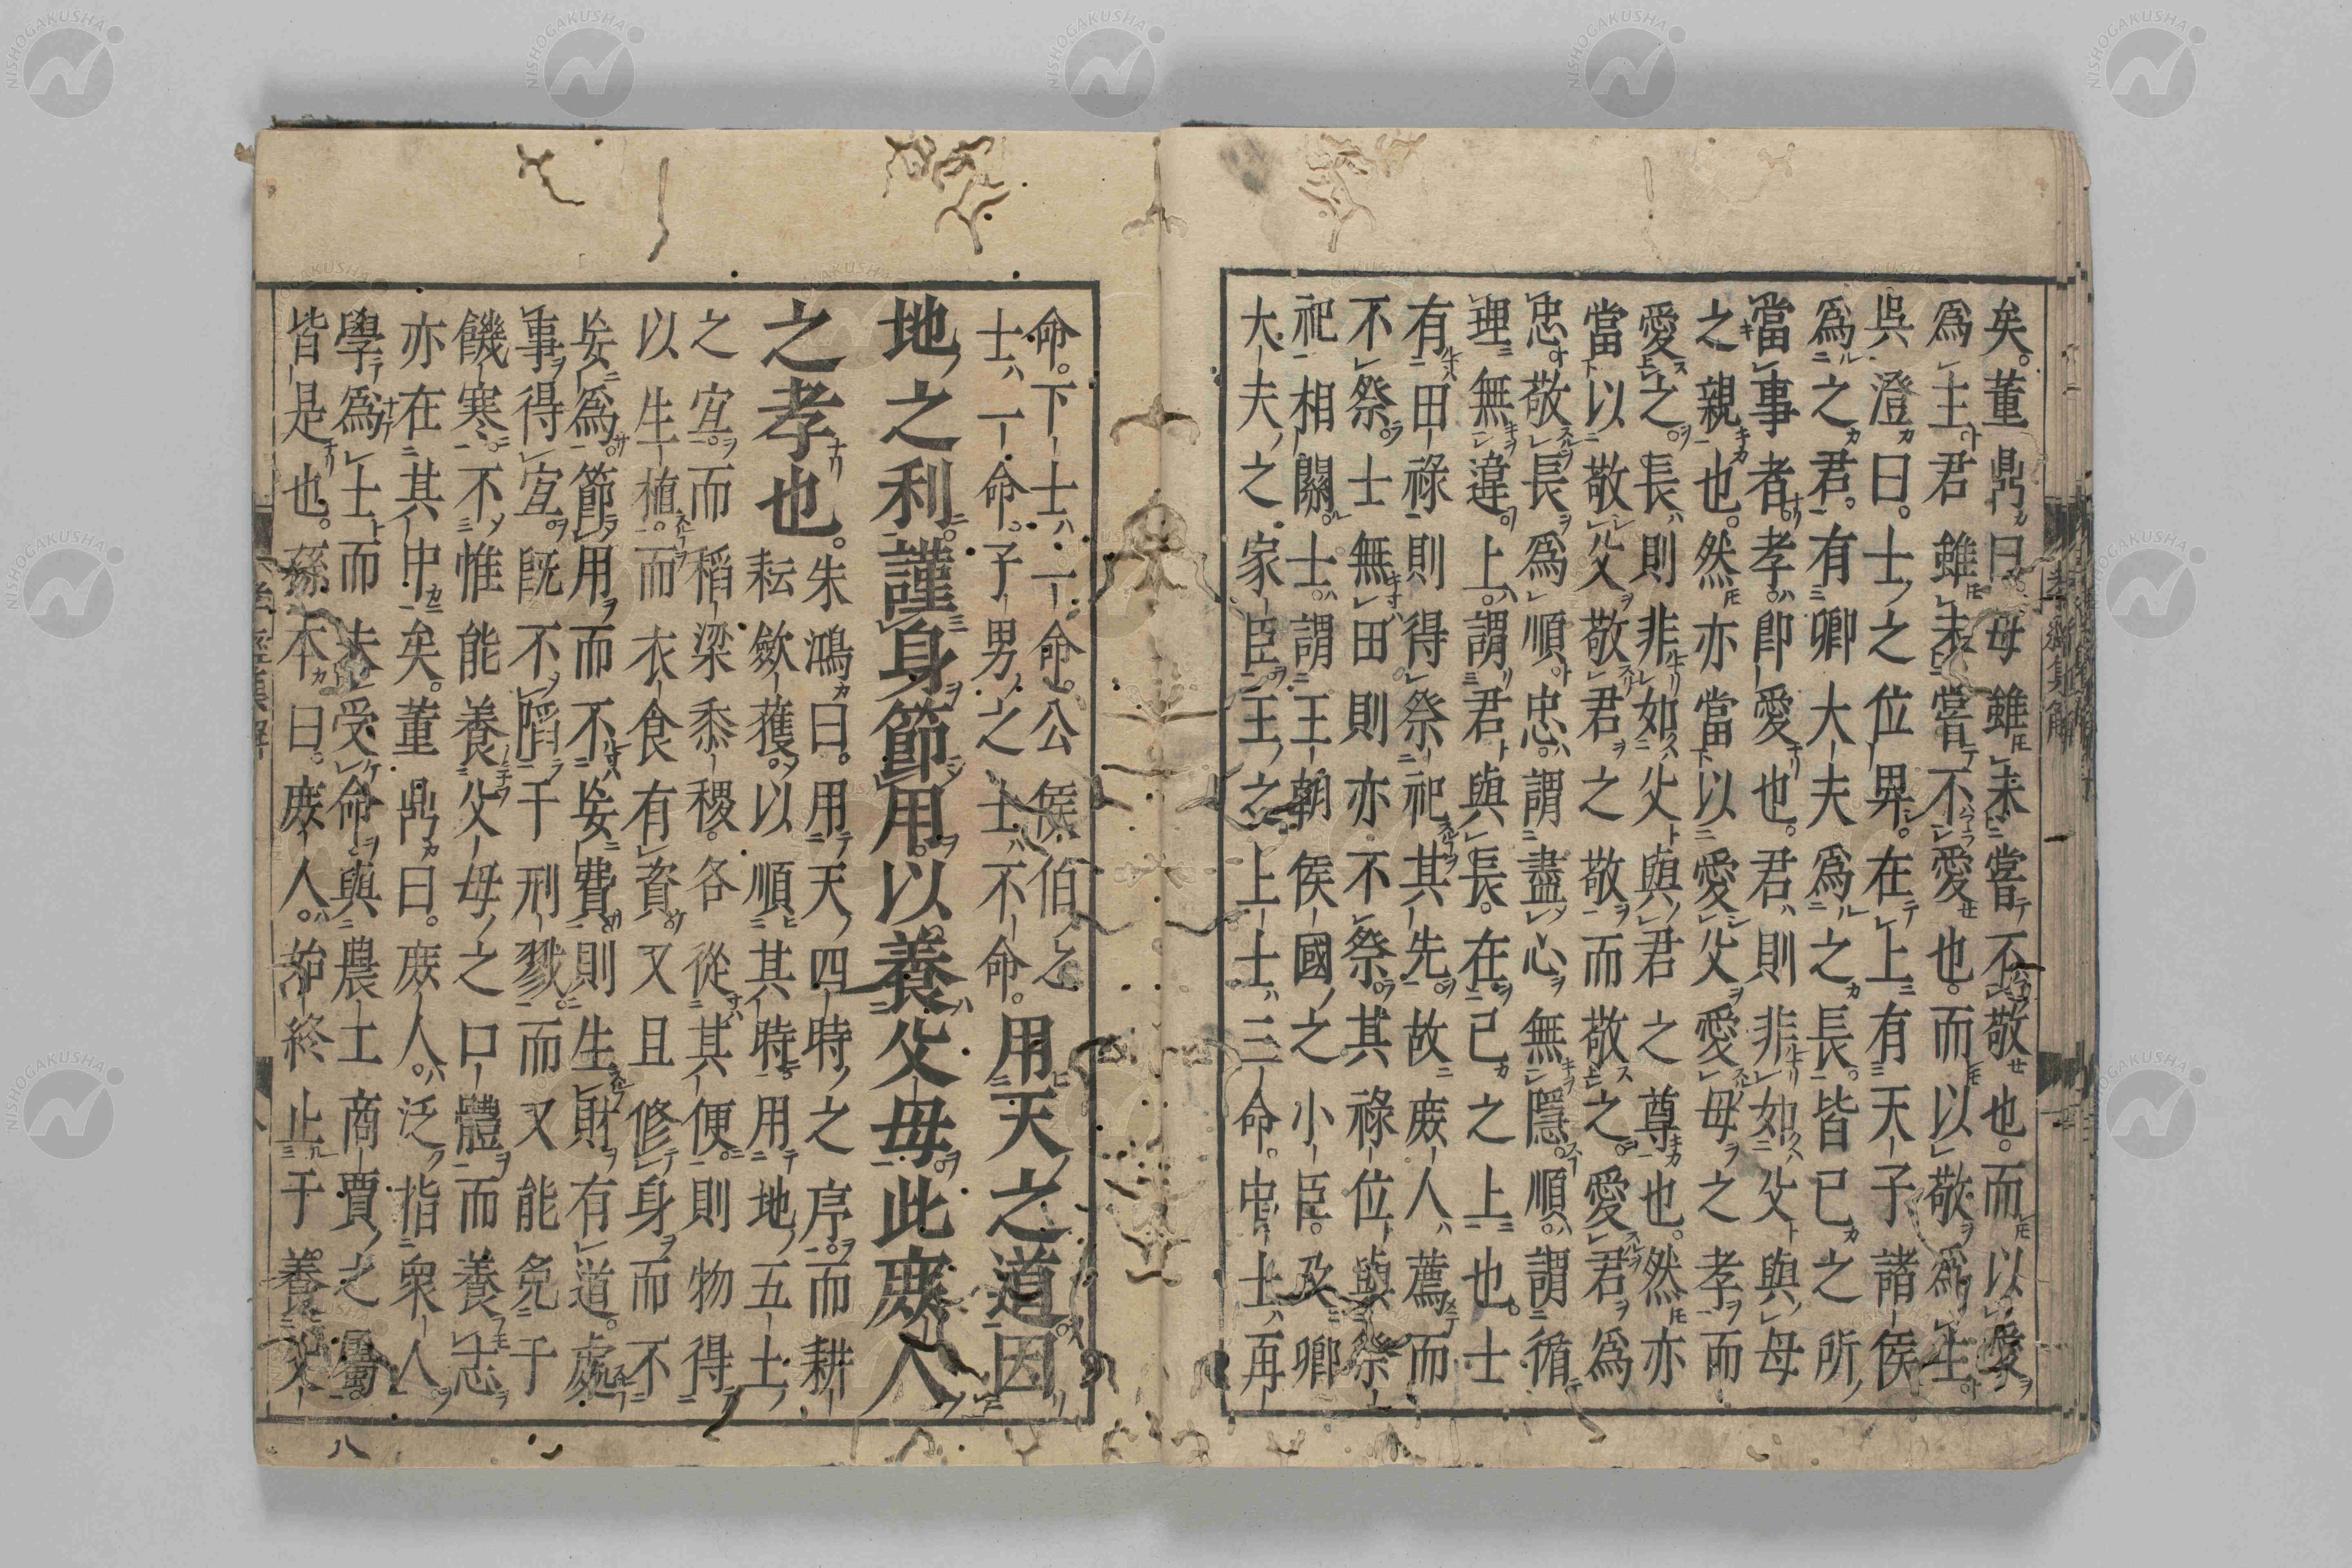 矣。董鼎曰母雖未嘗不敬也。而以愛
爲主君雖未嘗不愛也。而以敬爲主
吳澄曰。士之位卑。在上有天子諸侯
爲之君。有卿大夫爲之長。皆已之所
當事者。孝即愛也。君則非如父與母
之親也。然亦當以愛父愛母之孝而
愛之。長則非如父與君之尊也。然亦
當以敬父敬君之敬而敬之。愛君爲
忠。敬長爲順。忠謂盡心無隱。順謂循
理無違。上謂君與長。在己之上也。士
有田祿則得祭祀其先。故庻人薦而
不祭。士無田則亦不祭。其祿位與祭
祀相關。士謂王朝侯國之小臣。及卿
大夫之家臣。王之上士三命。中士再
命。下士一命。公侯伯之
士一命。子男之士不命。
用天之道因
地之利謹身節用以養父母此庻人
之孝也。
朱鴻曰。用天四時之序。而耕
耘斂穫。以順其時用地五土
之宜。而稻粱黍稷。各從其便。則物得
以生植。而衣食有資又且修身而不
妄爲節用而不妄費則生財有道。處
事得宜。既不陷于刑戮。而又能免于
饑寒。不惟能養父母之口體而養志
亦在其中矣。董鼎曰。庻人。泛指衆人
學爲士而未受命與農士商賈之屬
皆是也。孫本曰。庻人始終止于養父
八